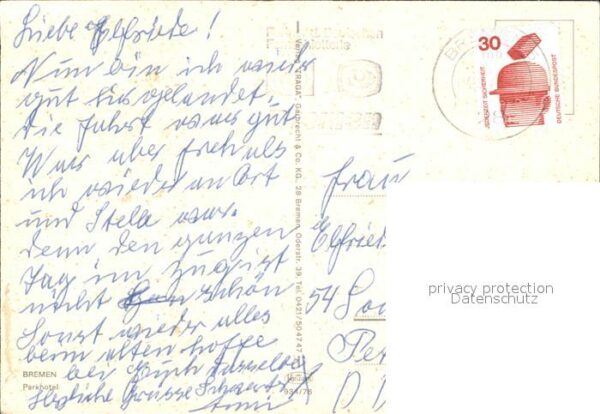 Liebe Elfriede!
Nun bin ich wieder
gut hier gelandet.
Die Fahrt war gut
War aber froh als
ich wieder an Ort
und Stelle war.
denn den ganzen
Tag im Zug ist
nicht schön
Sonst wieder alles
beim alten hoffe
bei Euch dasselbe
Herzliche Grüsse
BREMEN
Parkhotel
Verlag "KRAGA", Galbrecht & Co. KG., 28 Bremen, Oderstr. 39, Tel. 0421/504747
934/76
30
JEDERZEIT SICHERHEIT
DEUTSCHE BUNDESPOST
Frau
Elfriede
54
privacy protection
Datenschutz